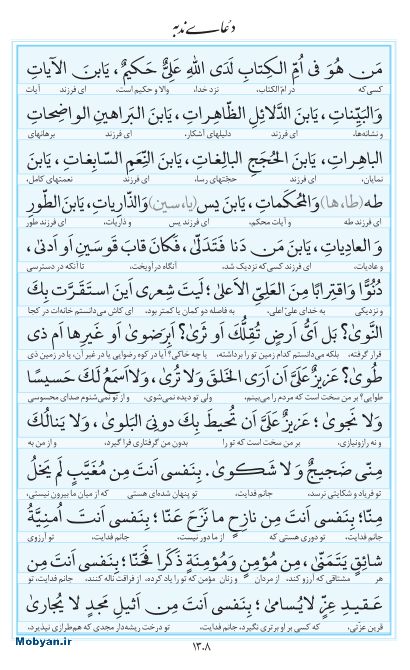 دُعای ندبه
مَن هُوَ فی اُمِّ الکِتابِ لَدَی اللهِ عَلِیٌّ حَکیمٌ، یَابنَ الآیاتِ
کسی که در امّ الکتاب، نزد خدا، والا و حکیم است، ای فرزند آیات
وَالبَیِّناتِ، یَابنَ الدَّلائِلِ الظّاهِراتِ، یَابنَ البَراهینِ الواضِحاتِ
و نشانه‌ها، ای فرزند دلیلهای آشکار، ای فرزند برهانهای
الباهِراتِ، یَابنَ الحُجَجِ البالِغاتِ، یَابنَ النِّعَمِ السّابِغاتِ، یَابنَ
نمایان، ای فرزند حجّتهای رسا، ای فرزند نعمتهای کامل،
طه (طا،ها) وَالمُحکَماتِ، یَابنَ یس (یا،سین) وَالذّارِیاتِ، یَابنَ الطّورِ
ای فرزند طه و آیات محکم، ای فرزند یس و ذاریات، ای فرزند طور
وَ العادِیاتِ، یَابنَ مَن دَنا فَتَدَلّی، فَکانَ قابَ قَوسَینِ اَو اَدنی،
و عادیات، ای فرزند کسی که نزدیک شد، آنگاه درآویخت، تا آنکه در دسترسی
دُنُوًّا وَاقتِرابًا مِنَ العَلِیِّ الاَعلی؛ لَیتَ شِعری اَینَ استَقَرَّت بِکَ
و نزدیکی به خدای علیّ اعلی، به فاصله دو کمان یا کمتر بود، ای کاش می‌دانستم خانه‌ات در کجا
النَّوی؟ بَل اَیُّ اَرضٍ تُقِلُّکَ اَو ثَری؟ اَبِرَضوی اَو غَیرِها اَم ذی
قرار گرفته، بلکه می‌دانستم کدام زمین تو را برداشته، یا چه خاکی؟ آیا در کوه رضوایی یا در غیر آن، یا در زمین ذی
طُوی؟ عَزیزٌ عَلَیَّ اَن اَرَی الخَلقَ وَلا تُری، وَلااَسمَعُ لَکَ حَسیسًا
طوایی؟ بر من سخت است که مردم را می‌بینم، ولی تو دیده نمی‌شوی، و از تو نمی‌شنوم صدای محسوسی
وَلا نَجوی؛ عَزیزٌ عَلَیَّ اَن تُحیطَ بِکَ دونِیَ البَلوی، وَلا یَنالُکَ
و نه رازونیازی، بر من سخت است که تو را بدون من گرفتاری فرا گیرد، و از من به
مِنّی ضَجیجٌ وَ لا شَکوی. بِنَفسی اَنتَ مِن مُغَیَّبٍ لَم یَخلُ
تو فریاد و شکایتی نرسد، جانم فدایت، تو پنهان شده‌ای هستی که از میان ما بیرون نیستی،
مِنّا؛ بِنَفسی اَنتَ مِن نازِحٍ ما نَزَحَ عَنّا؛ بِنَفسی اَنتَ اُمنِیَّةُ
جانم فدایت، تو دوری هستی که از ما دور نیست، جانم فدایت، تو آرزوی
شائِقٍ یَتَمَنّی، مِن مُؤمِنٍ وَمُؤمِنَةٍ ذَکَرا فَحَنّا؛ بِنَفسی اَنتَ مِن
هر مشتاقی که آرزو کند، از مردان و زنان مؤمن که تو را یاد کرده، از فراقت ناله کنند، جانم فدایت، تو
عَقیدِ عِزٍّ لایُسامی؛ بِنَفسی اَنتَ مِن اَثیلِ مَجدٍ لا یُجاری
قرین عزّتی، که کسی بر او برتری نگیرد، جانم فدایت، تو درخت ریشه‌دار مجدی که هم‌طرازی نپذیرد،
۱۳۰۸
Mobyan.ir